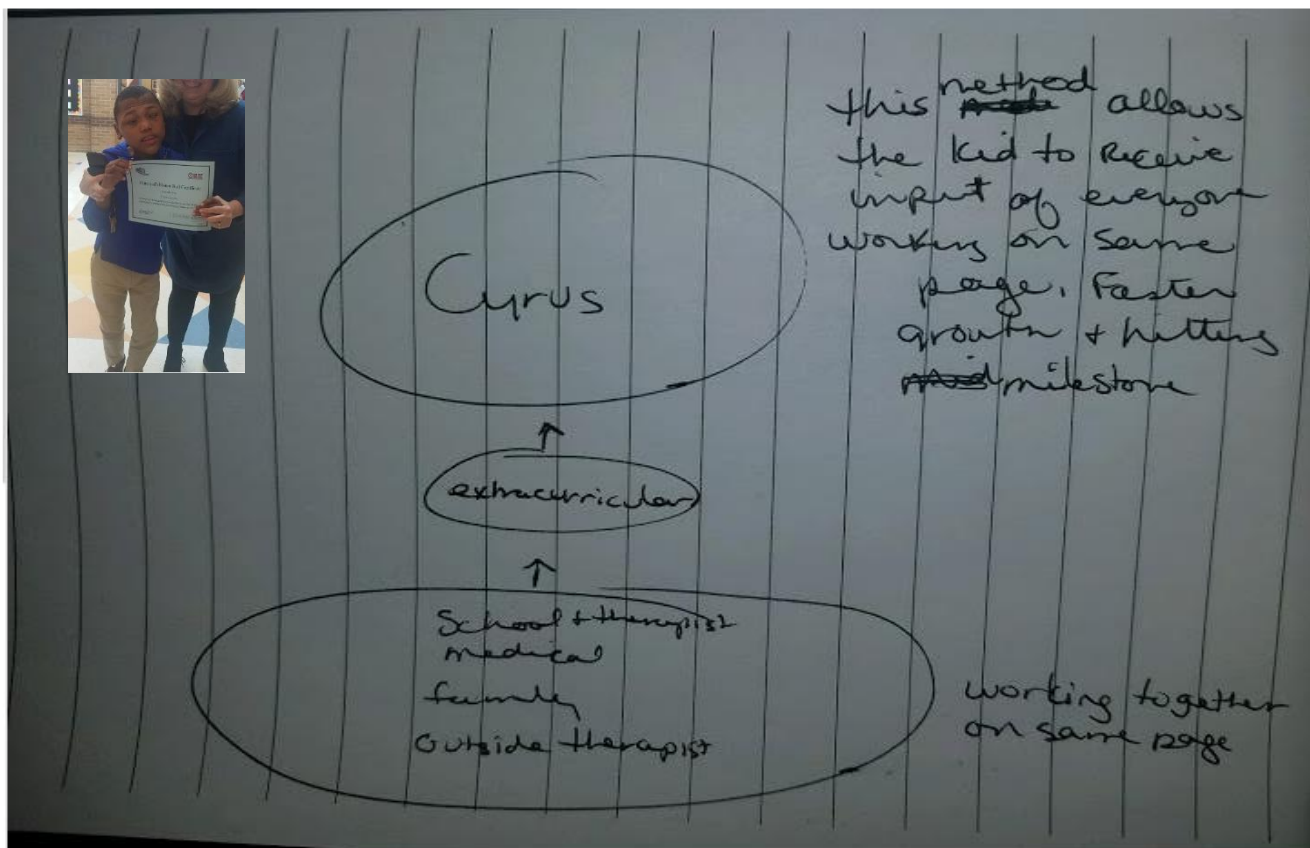 Cyrus
extracurricular
School + therapist
medical
family
outside therapist
this method allows
the kid to Receive
input of everyone
working on same
page. Faster
growth + hitting
milestone
working together
on same page